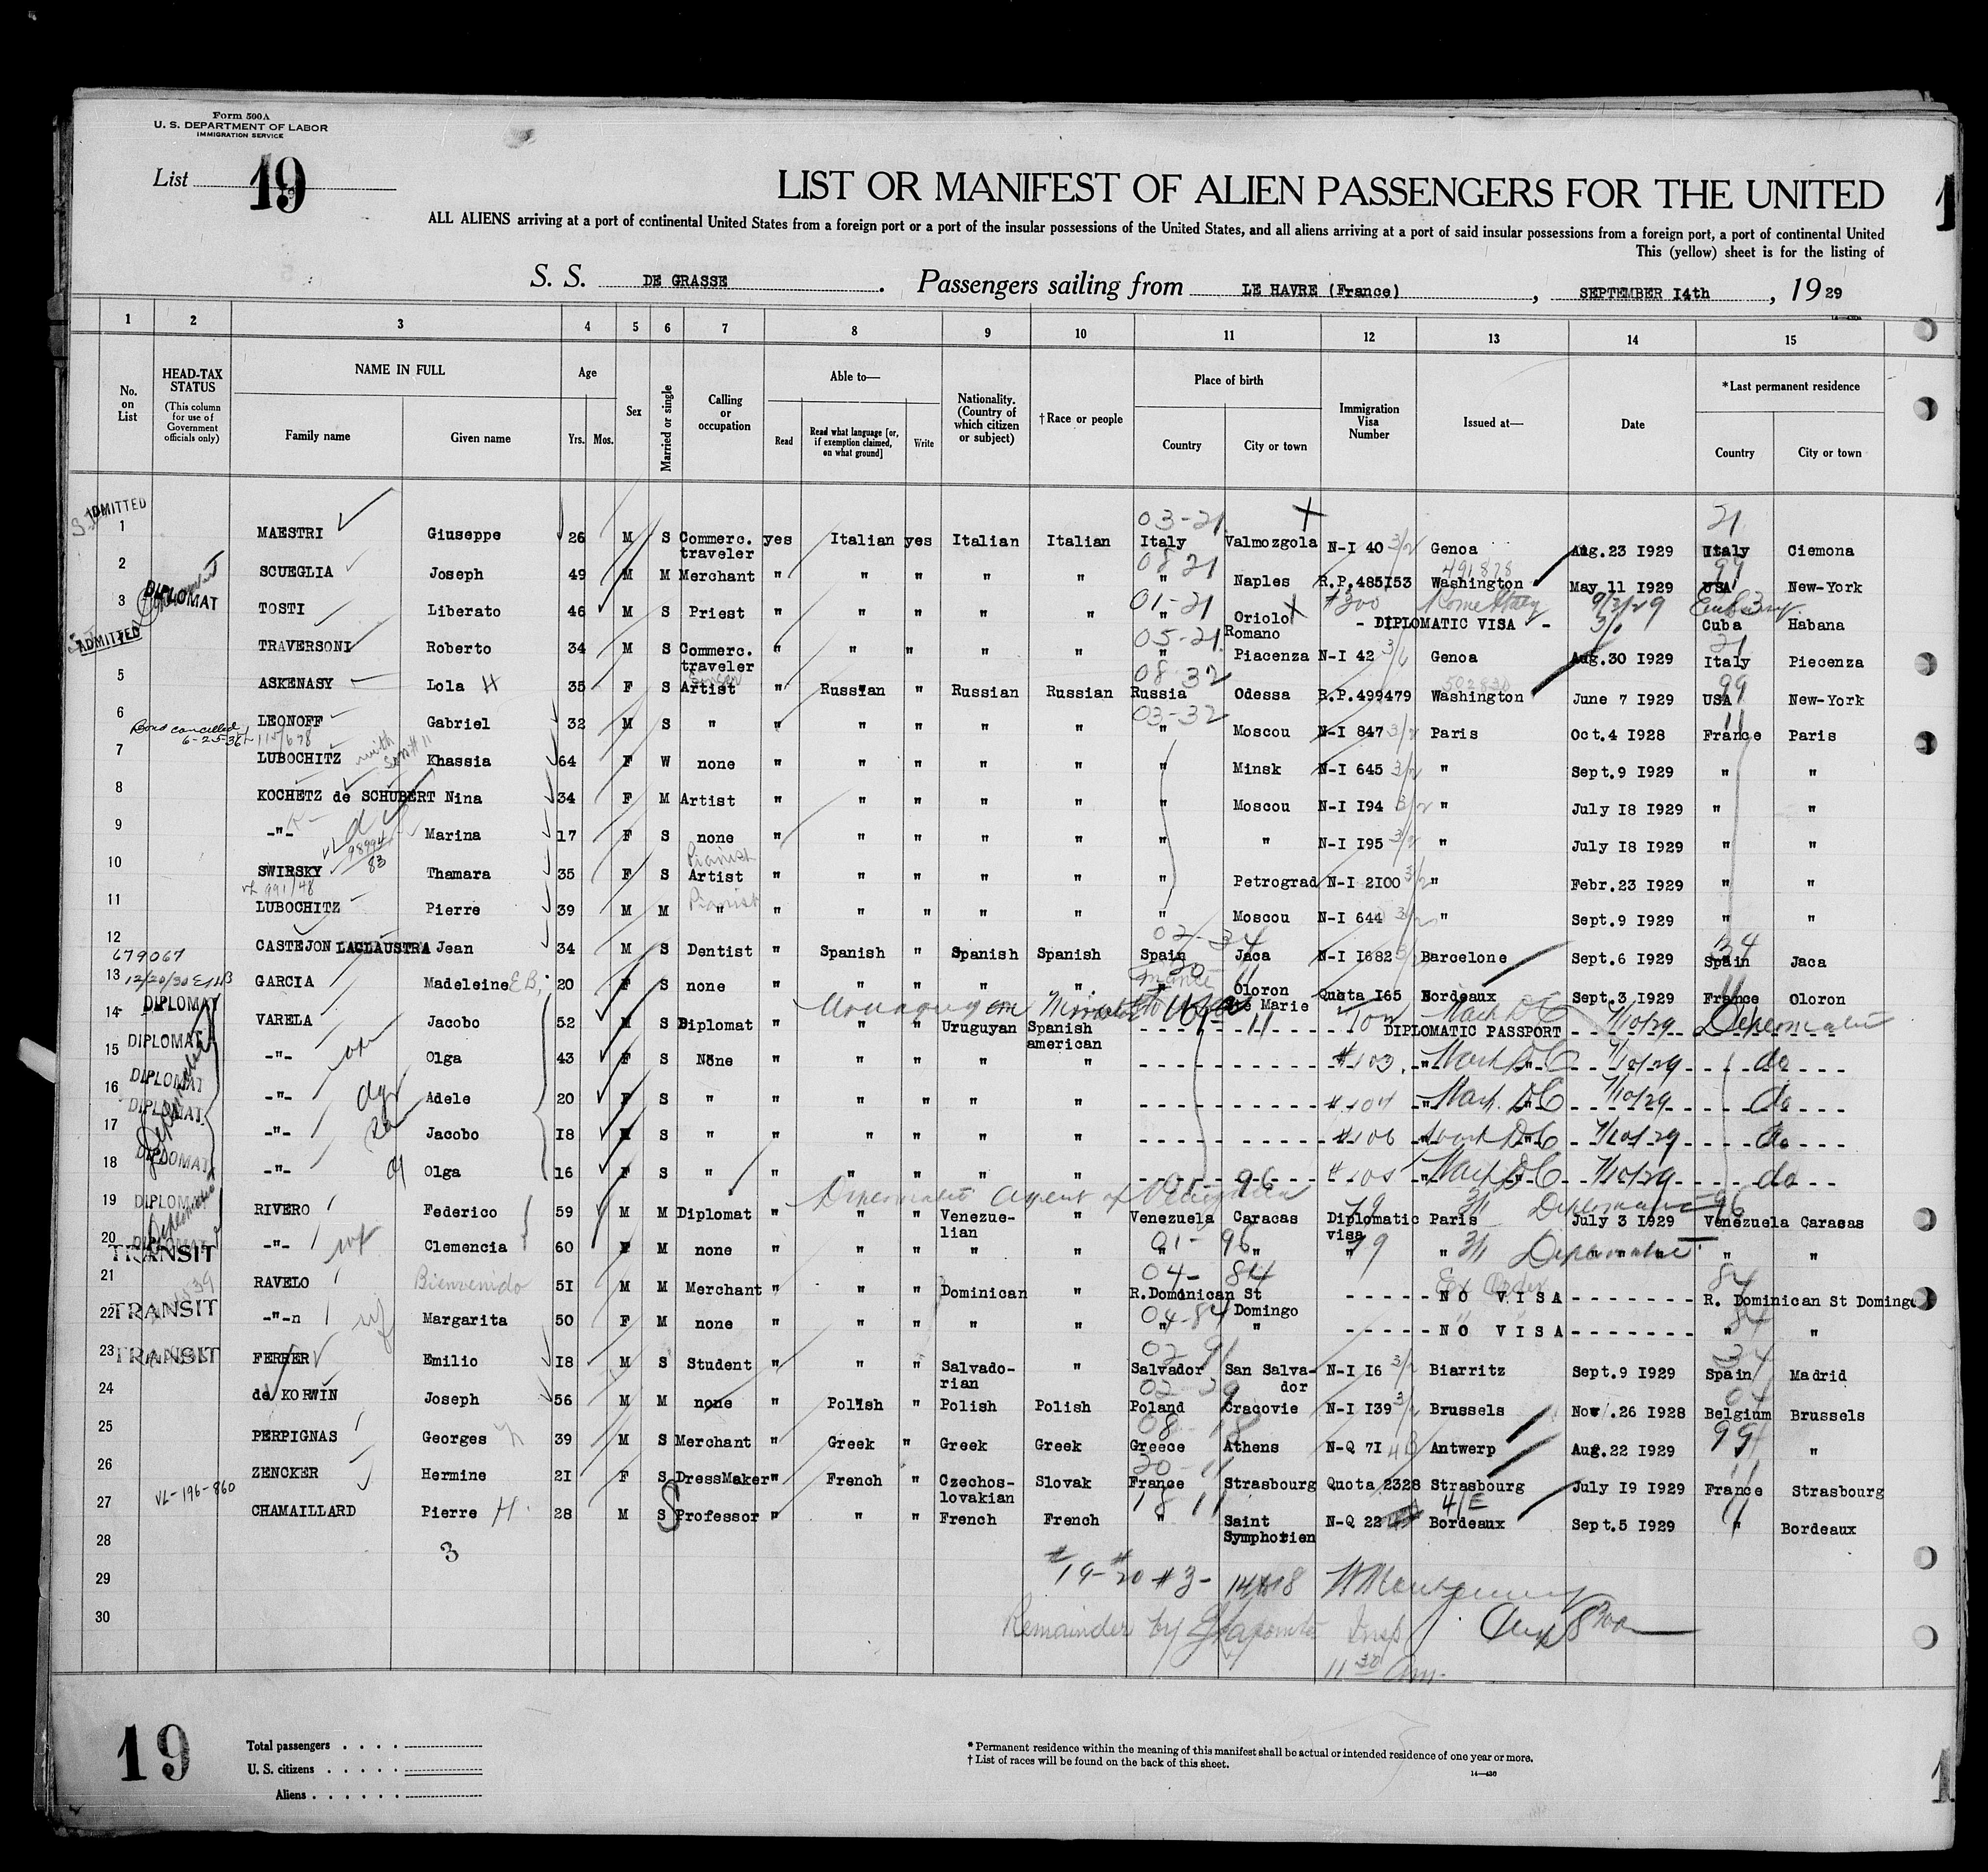 Form 500A
U. S. DEPARTMENT OF LABOR
IMMIGRATION SERVICE
List 19
LIST OR MANIFEST OF ALIEN PASSENGERS FOR THE UNITED
ALL ALIENS arriving at a port of continental United States from a foreign port or a port of the insular possessions of the United States, and all aliens arriving at a port of said insular possessions from a foreign port, a port of continental United
This (yellow) sheet is for the listing of
S. S. DE GRASSE . Passengers sailing from LE HAVRE (France) , SEPTEMBER I4th , 19 29
1 2 3 4 5 6 7 8 9 10 11 12 13 14 15
No. on List HEAD-TAX STATUS (This column for use of Government officials only) NAME IN FULL Family name Given name Age Yrs. Mos. Sex Married or single Calling or occupation Able to— Read Read what language [or, if exemption claimed, on what ground] Write Nationality. (Country of which citizen or subject) †Race or people Place of birth Country City or town Immigration Visa Number Issued at— Date *Last permanent residence Country City or town
ADMITTED 03-21 21
1 MAESTRI Giuseppe 26 M S Commerc. traveler yes Italian yes Italian Italian Italy Valmozgola N-I 40 3/2 Genoa Aug.23 I929 Italy Ciemona
08 21 491878 99
2 SCUEGLIA Joseph 49 M M Merchant " " " " " " Naples R.P.485I53 Washington May 11 I929 USA New-York
DIPLOMAT 01-21 #300 Rome Italy 9/2/29
3 TOSTI Liberato 46 M S Priest " " " " " " Oriolo Romano - DIPLOMATIC VISA - 3/1 Cuba Habana
ADMITTED 05-21 21
TRAVERSONI Roberto 34 M S Commerc. traveler " " " " " " Piacenza N-I 42 Genoa Aug.30 I929 Italy Piecenza
Singer 08-32 502830 99
5 ASKENASY Lola H 35 F S Artist " Russian " Russian Russian Russia Odessa R.P.499479 Washington June 7 I929 USA New-York
03-32 11
6 LEONOFF Gabriel 32 M S " " " " " " " Moscou N-I 847 3/2 Paris Oct.4 I928 France Paris
Bond cancelled 6-25-36
with son # 11
7 LUBOCHITZ Khassia 64 F W none " " " " " " Minsk N-I 645 3/2 " Sept.9 I929 " "
8 KOCHETZ de SCHUBERT Nina 34 F M Artist " " " " " " Moscou N-I I94 3/2 " July I8 I929 " "
9 -"- Marina I7 F S none " " " " " " " N-I I95 3/2 " July I8 I929 " "
98994
83
Pianist
10 SWIRSKY Thamara 35 F S Artist " " " " " " Petrograd N-I 2I00 3/2 " Febr.23 I929 " "
Pianist
11 LUBOCHITZ Pierre 39 M M " " " " " " " Moscou N-I 644 " Sept.9 I929 " "
02-34 34
12 CASTEJON LACLAUSTRA Jean 34 M S Dentist " Spanish " Spanish Spanish Spain Jaca N-I I682 Barcelone Sept.6 I929 Spain Jaca
679067
12/20/30
13 GARCIA Madeleine 20 F S none " " " " " " Oloron Ste Marie Quota I65 Bordeaux Sept.3 I929 France Oloron
DIPLOMAT Uruguayan Minister to USA
14 VARELA Jacobo 52 M S Diplomat " " " Uruguyan Spanish american 102 DIPLOMATIC PASSPORT Wash DC 7/10/29 Diplomatic
DIPLOMAT
15 -"- Olga 43 F S None " " " " " #103 " Wash DC 7/10/29 do
DIPLOMAT
16 -"- Adele 20 F S " " " " " " #104 " Wash. DC 7/10/29 do
DIPLOMAT
17 -"- Jacobo I8 M S " " " " " " #106 Wash DC 7/10/29 do
DIPLOMAT
18 -"- Olga I6 F S " " " " " " #105 " Wash DC 7/10/29 do
Diplomatic Agent of Venezuela 01-96
19 DIPLOMAT RIVERO Federico 59 M M Diplomat " " " Venezue-lian " Venezuela Caracas Diplomatic visa 79 Paris 3/1 Diplomatic July 3 I929 Venezuela Caracas
01-96
20 DIPLOMAT -"- wf Clemencia 60 F M none " " " " " " " " 79 " 3/1 Diplomatic " "
TRANSIT 04-84 84
21 RAVELO Bienvenido 5I M M Merchant " " " Dominican " R.Dominican St Domingo - - - NO VISA - - - R. Dominican St Domingo
TRANSIT 04-84 84
22 -"-n wf Margarita 50 F M none " " " " " " " - - - NO VISA - - - " "
TRANSIT 34
23 FERRER Emilio I8 M S Student " " " Salvado-rian " Salvador San Salva-dor N-I I6 3/2 Biarritz Sept.9 I929 Spain Madrid
24 de KORWIN Joseph 56 M M none " Polish " Polish Polish Poland Cracovie N-I I39 3/2 Brussels Nov.26 I928 Belgium Brussels
08-18 99
25 PERPIGNAS Georges 39 M S Merchant " Greek " Greek Greek Greece Athens N-Q 7I Antwerp Aug.22 I929 "
20-11 11
26 ZENCKER Hermine 2I F S DressMaker " French " Czechos-lovakian Slovak France Strasbourg Quota 2328 Strasbourg July I9 I929 France Strasbourg
VL-196-860 18 11 4/E
27 CHAMAILLARD Pierre H 28 M S Professor " " " French French " Saint Symphorien N-Q 22 Bordeaux Sept.5 I929 " Bordeaux
28
3
#19-#20 #3- 14to18
29
30 Remainder by Insp
11 30 Am.
19
Total passengers
U. S. citizens
Aliens
* Permanent residence within the meaning of this manifest shall be actual or intended residence of one year or more.
† List of races will be found on the back of this sheet.
14—430